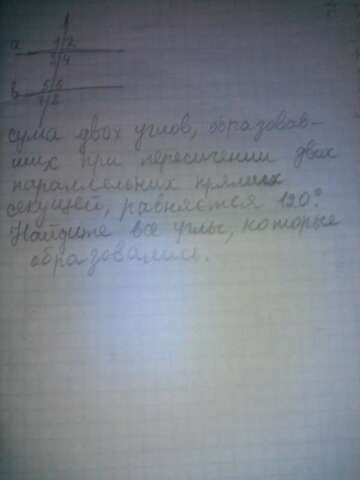 a 1 2
3 4
b 5 6
7 8
сума двох углов, образовав-
ших при пересичении двох
параллельних прямих
секущей, равняется 120°.
Найдите все углы, которые
образовались.